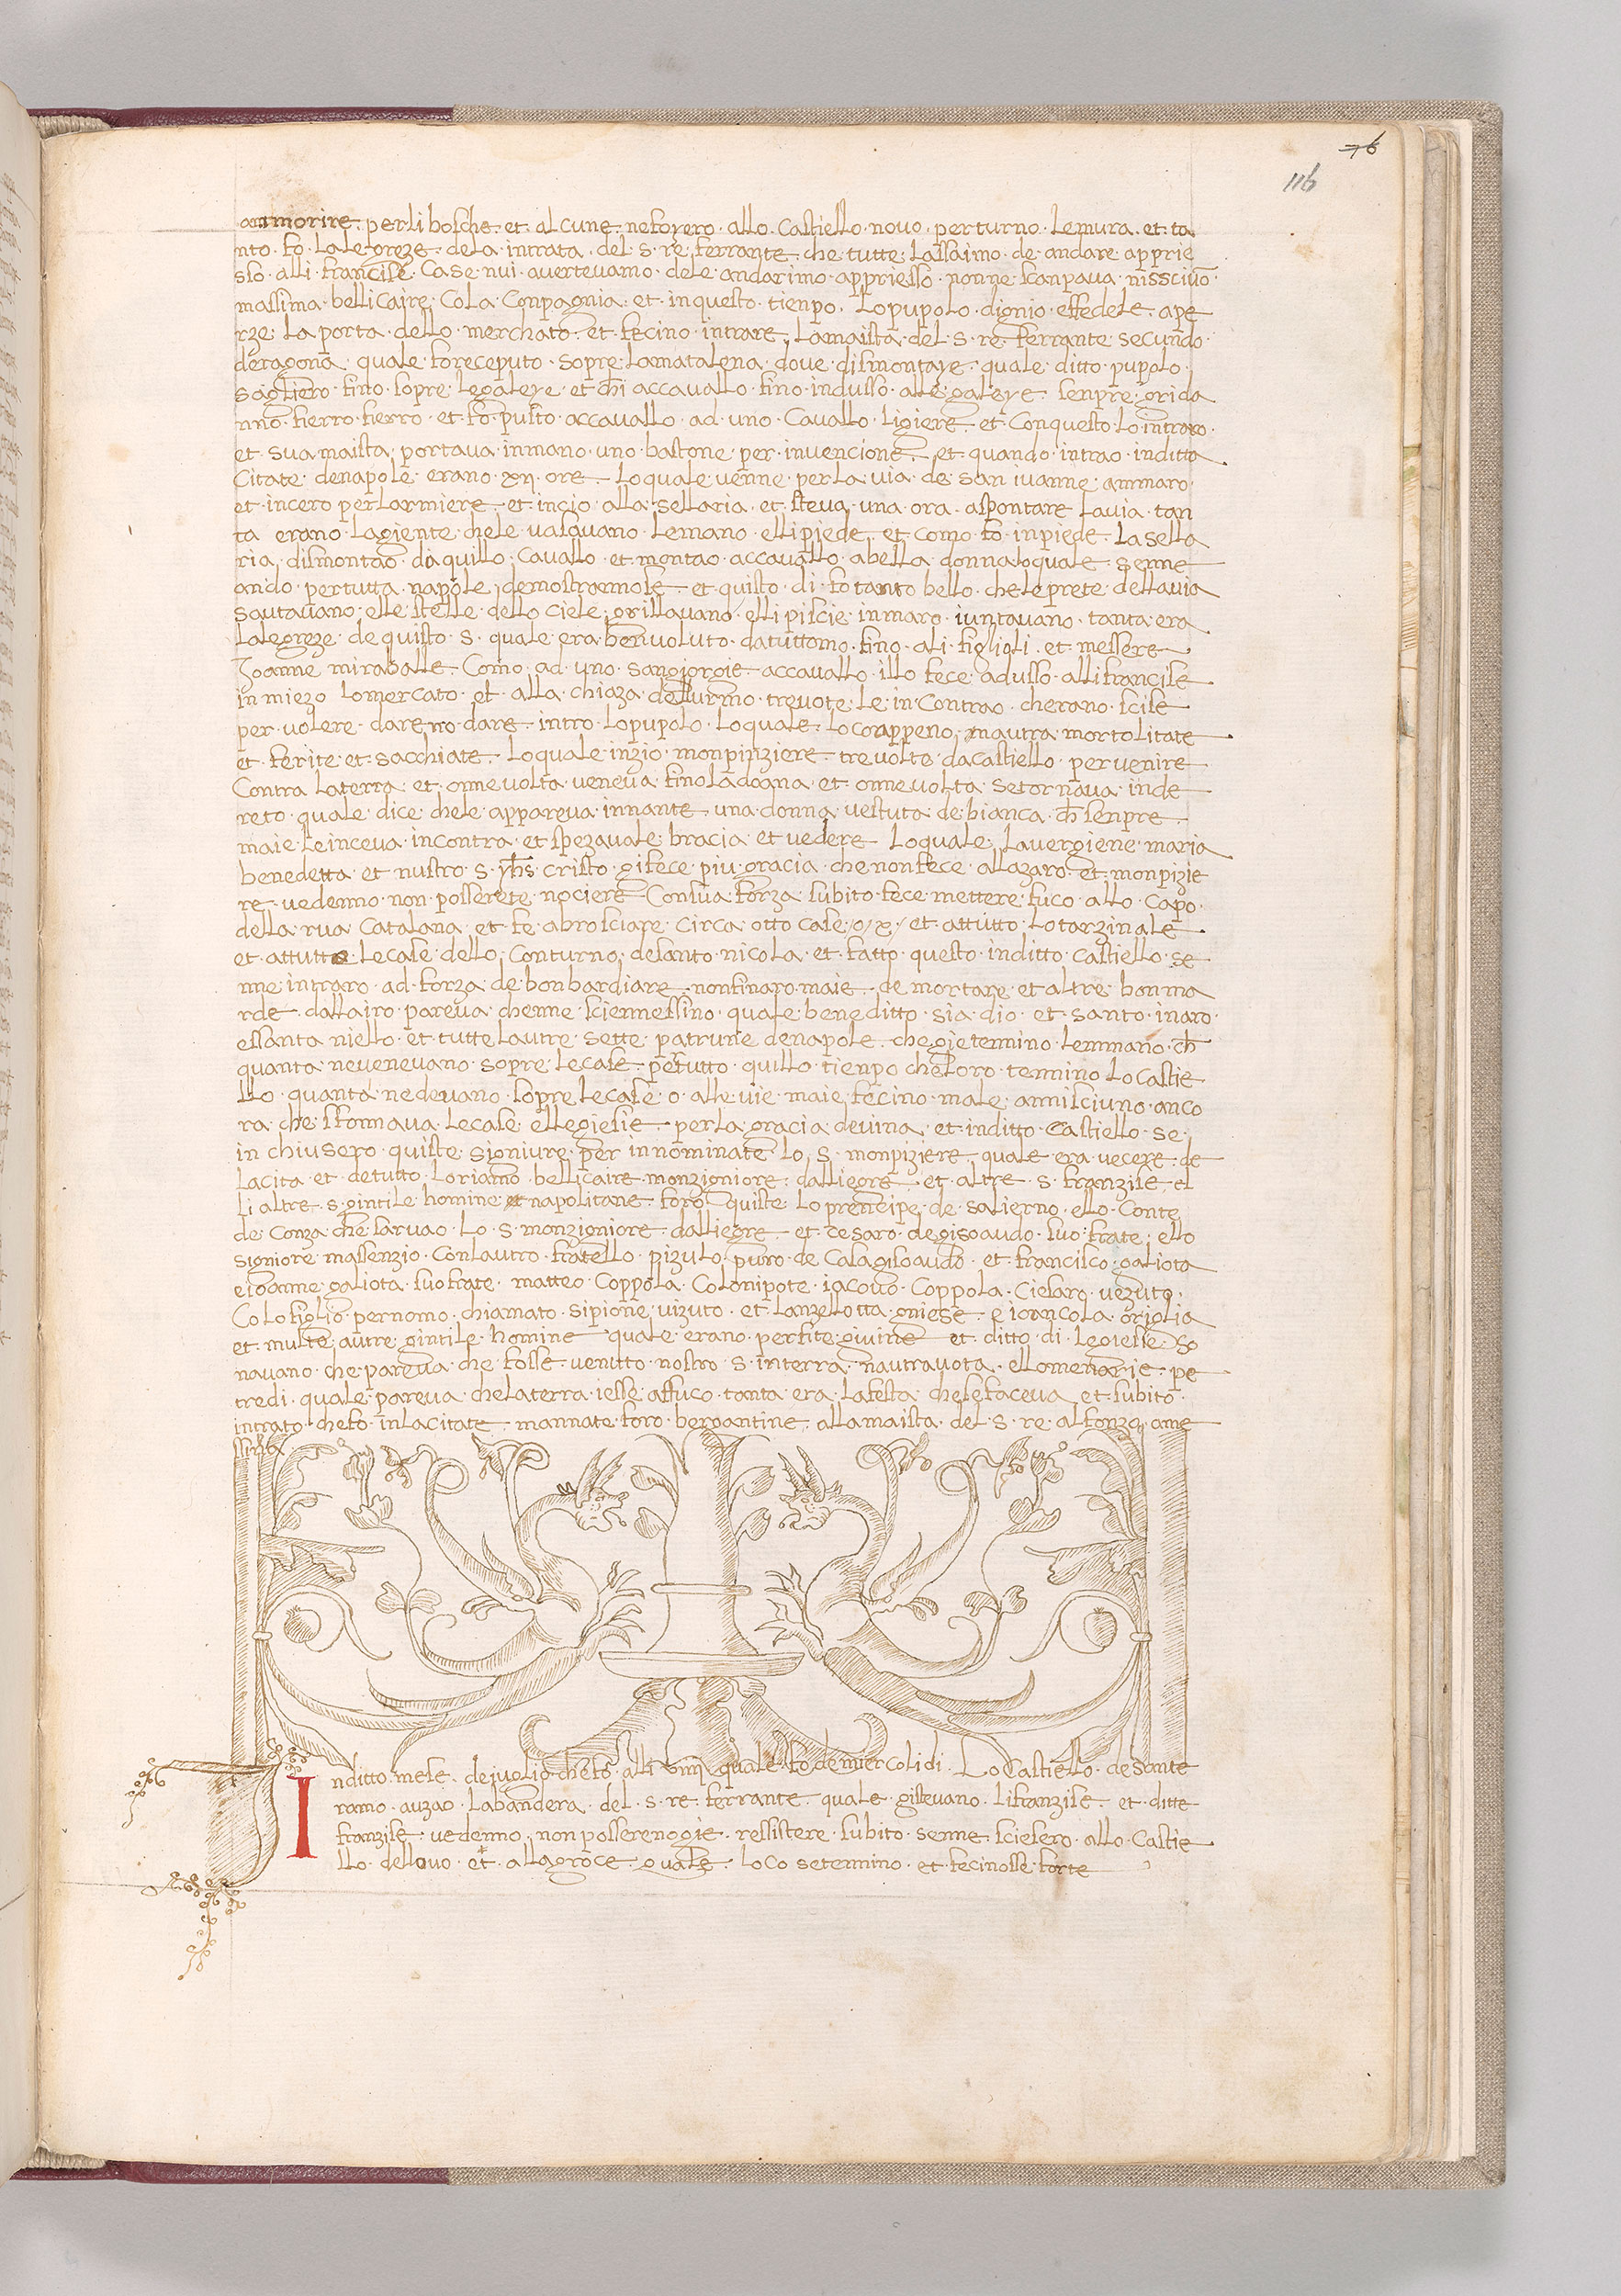 76
116
ammorire · perli bosche · et · alcune · nefoyero · allo · Castiello · novo · per turno · Lemura · et · ta
nto · fo · Lalegreze · dela · intrata · del · s · re · ferrante · che tutte · Lassaimo · de · andare apprie
sso · alli · francise · Ca se nui · avertevamo · dele andarimo · appriesso · nonne scanpava · nissciuō ·
massima · bellicaire · Cola Conpagnia · et · in questo · tienpo · Lo pupolo · dignio · effedele · ape
rze · La porta · dello · merchato · et fecino · intrare · Lamaista · del · s · re · ferrante secundo ·
deragona · quale · fo receputo · sopre · Lamatalena · dove · dismontaye · quale · ditto · pupolo ·
sagliero · fino · sopre · Legaleye · et chi accavallo · fino · indusso · allegaleye · senpre · grida
nno · fierro · fierro · et · fo · pusto · accavallo · ad · uno · Cavallo · Ligiere · et · Conquesto · Lo intraro ·
et · sua maista · portava · inmano · uno · bastone · per · invencione · et · quando · intrao · inditta
Citate · denapole · erano · xxj · ore · Loquale · venne · per La via · de · san ivanne · ammaro ·
et · incero per Larmiere · et · incio · alla · sellaria · et · steva · una · ora · a spontare Lavia · tan
ta erano · Lagiente · chele vasavano · Lemano · elli piede · et · como · fo · inpiede · La sella
ria · dismontao · da quillo · Cavallo · et · montao · accavallo · abella · donna loquale · senne
ando · per tutta · napole · demostrannose · et · quisto · di · fo tanto · bello · che le prete · della via
sautavano · elle stelle · dello ciele · grillavano · elli piscie · inmaro · iunzavano · tanta · era
Lalegreze · de quisto · s · quale · era · benvoluto · da tuttomo · fino · ali · figlioli · et · messere
Joanne miraballe · Como · ad · uno · san jorgie · accavallo · illo fece adusso · alli francise
in miezo lo mercato · et · alla · chiaza · dellurmo · trevote · Le in Contrao · cherano · scise
per · volere · dareno · dare · intro · Lo pupolo · Loquale · Loco nappeno · nautra mortolitate
et · ferite · et · sacchiate · Loquale · inzio · monpinziere · tre volte · da castiello · per venire
Contra · La terra · et · onne volta · veneva · fino Ladoana · et · onne volta · setornava · inde
reto · quale · dice · chele · appareva · innante · una · donna · vestuta · de · bianca · ch senpre
maie · Leinceva · incontra · et · spezavale · bracia · et vedere · Loquale · La vergiene · maria
benedetta · et · nustro · s · yhs · cristo · gi fece · piu · gracia · che non fece · allazaro · et · monpizie
re · vedenno · non · posserete · nociere · Con sua · forza · subito · fece · mettere · fuco · allo · Capo ·
della rua · Catalana · et · fe · abrosciare · circa · otto · case · o · x · et · attutto · Lo tarzinale
et · attutte · Lecase · dello · Conturno · desanto · nicola · et · fatto · questo · inditto · Castiello · se
nne intraro · ad · forza · de bonbardiare · non finaro · maie · de mortare · et altre · bonma
rde · dallairo · pareva · chenne · sciennessino · quale · beneditto · sia · dio · et · santo · inaro
essanta niello · et · tutte Lautre · sette · patrune denapole · che gie tennino · Lemmano · ch
quanta · nevenevano · sopre · Lecase · per tutto · quillo · tienpo · che Loro · tennino · Lo Castie
llo · quanta · nedevano · sopre Lecase · o · alle vie · maie · fecino · male · a nnisciuno · anco
ra · che · sfonnava · Lecase · ellegiesie · per la gracia devina · et · inditto · Castiello · se
in chiusero · quiste · signiure · per · innominate · Lo · s · monpiziere · quale · era · vecere · de
Lacita · et · detutto · Loriamo · bellicaire · monzigniore · dalliegre · et · altre · s · franzise · el
li altre · s · gintile · homine · et napolitane · foro · quiste · Lo prencipe · de · salierno · ello · Conte
de · Conza · che sarvao · Lo · s · monzigniore · dalliegre · et · cesaro · degisoaudo · suo · frate · ello
signiore · massenzio · Con Lautro · fratello · pizulo · puro · de Casagisoaudo · et · francisco · galiota
e ioanne · galiota · suo frate · matteo · Coppola · Colo nipote · iacouo · Coppola · Ciesaro · vezuto ·
Colo figlio · pernomo · chiamato · sipione · vizuto · et · Lanzellotta · gniese · e ioancola · origlia
et · multe · autre · gintile · homine · quale · erano · perfite · givine · et · ditto · di · Legiesie · so
navano · che pareva · che · fosse · venuto · nostro · s · interra · nautravota · ello menarie · pe
tre di · quale · pareva · chelaterra · iesse · affuco · tanta · era · La festa · che se faceva · et · subito ·
intrato · che fo · in Lacitate · mannate · foro · bergantine · alla maista · del · s · re · alfonzo · ame
ssina
Inditto · mese · dejuglio · che fo · alli · viiij · quale · fo · de mercolidi · Lo Castiello · desante
ramo · auzao · Labandera · del · s · re · ferrante · quale · gistevano · li franzise · et · ditte
franzise · vedenno · non posserenogie · ressistere · subito · senne · sciesero · allo · Castie
llo · dellovo · et · allagroce · quale · Loco setennino · et · fecinosse · forte